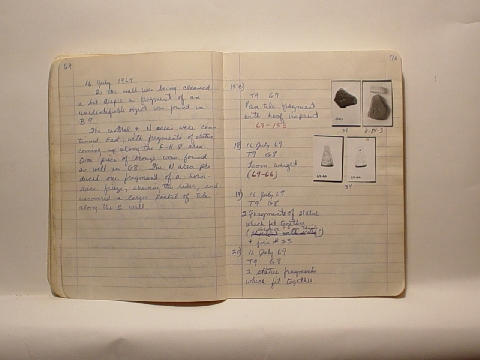 16 July 1969
As the wall was being cleaned
a bit deeper a fragment of an
unidentifiable object was found in
B 9.
The central & N areas were con-
tinued East, with fragments of statue
coming up along the F-H 8 area.
One piece of bronze was found
as well in G8. The N area pro-
duced one fragment of a horse-
race frieze, showing the rider, and
uncovered a large pocket of tile
along the E wall.
T9 69
Pan tile fragment
with hoof imprint
69-153
18) 16 July 69
T9 G8
Loom weight
(69-66)
19) 16 July 69
T9 G8
2 fragments of statue
which fit together
& fits # 23
20) 16 July 69
T9 G8
2 statue fragments
which fit together